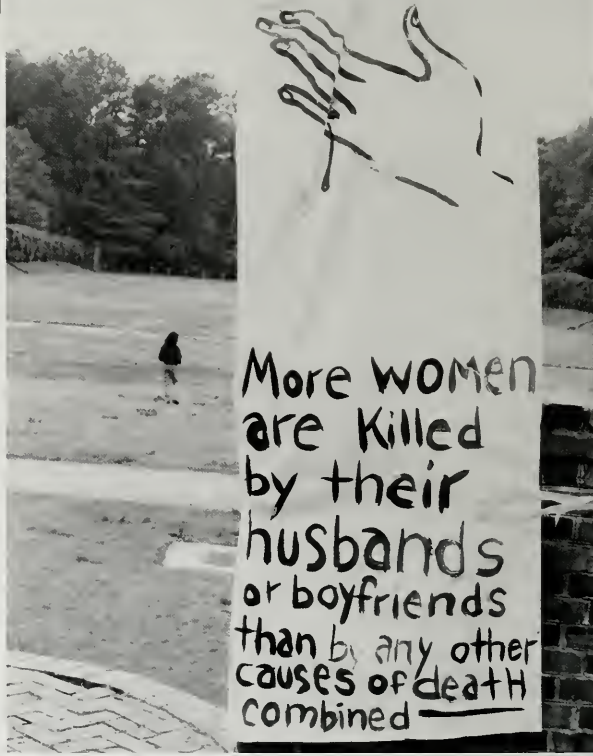 More women
are killed
by their
husbands
or boyfriends
than by any other
causes of deatH
combined